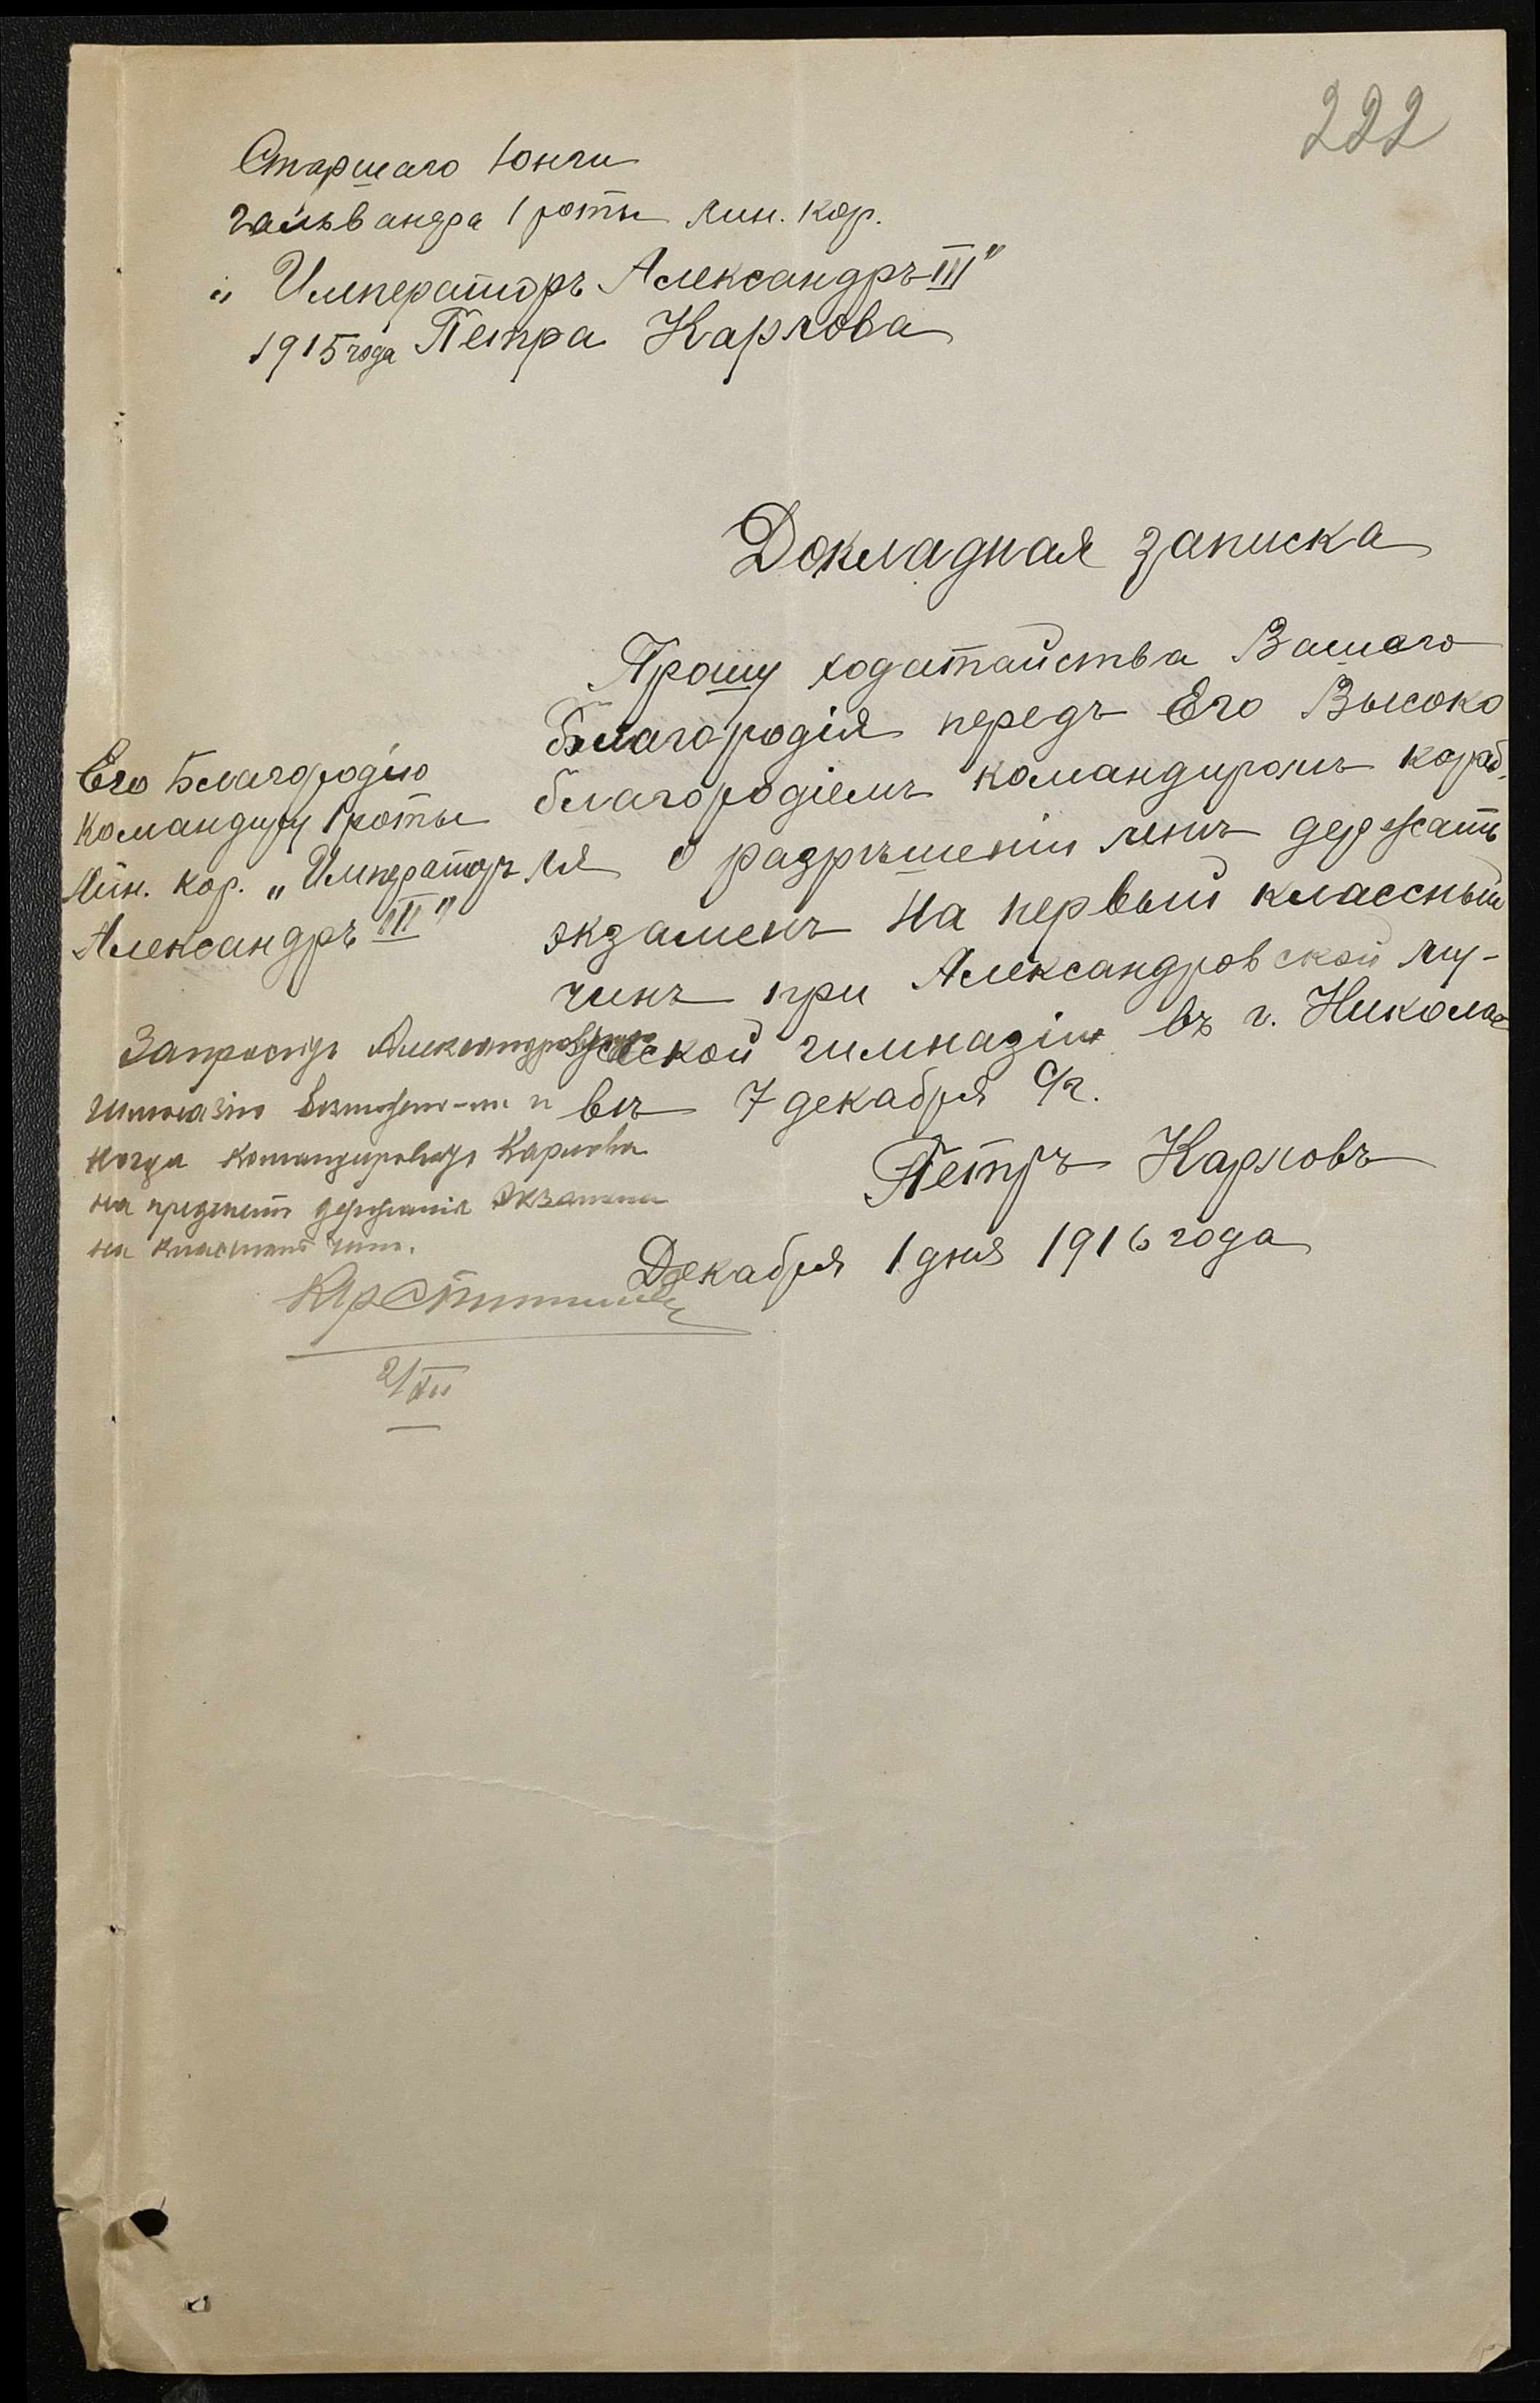 222
Старшаго Юнги
гальвандра 1 роты лин. кор.
„Императоръ Александръ III"
1915 года Петра Карлова
Докладная записка
Прошу ходатайства Вашаго
Благородія передъ Его Высоко
благородіемъ командиромъ кораб-
ля о разрѣшеніи мнѣ держать
экзаменъ на первый классный
чинъ при Александровской му-
жской гимназіи въ г. Николае
вѣ 7 декабря с/г.
Петръ Карловъ
Декабря 1 дня 1916 года
Его Благородію
Командиру 1 роты
Лин. кор. „Императоръ
Александръ III"
Запросить Александровскую
гимназію и
когда командировать Карлова
на предметъ держанія экзамена
на классный чинъ.
2/XII